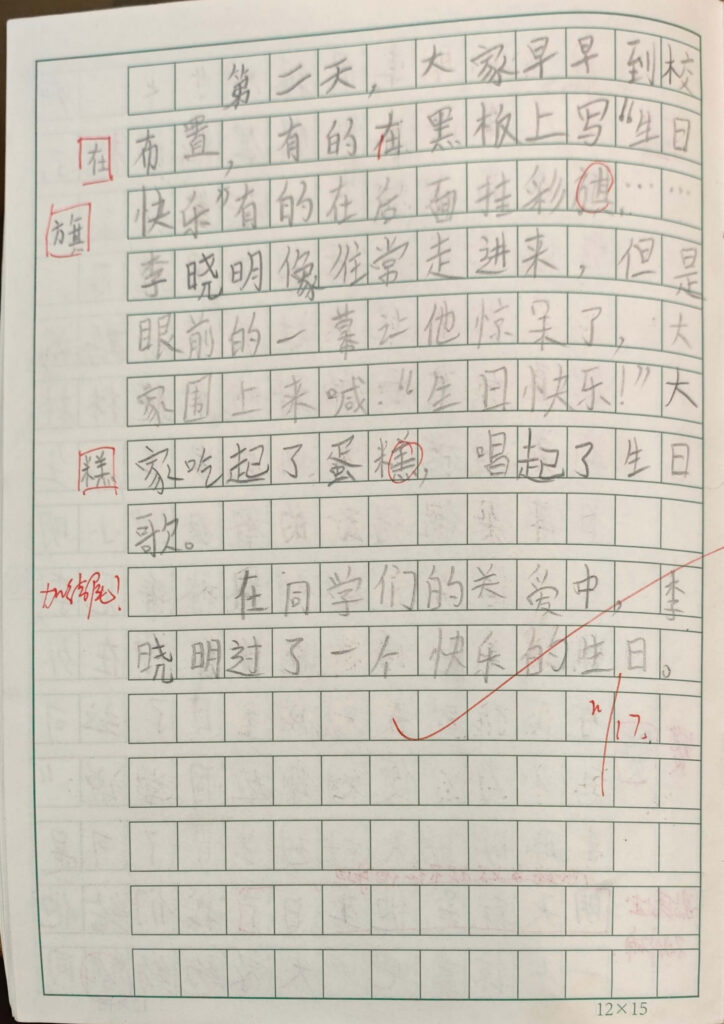 第二天，大家早早到校
在 布置，有的在黑板上写“生日
旗 快乐”有的在后面挂彩，……
李晓明像往常走进来，但是
眼前的一幕让他惊呆了，大
家围上来喊：“生日快乐！”大
糕 家吃起了蛋糕，唱起了生日
歌。
加结尾？ 在同学们的关爱中，李
晓明过了一个快乐的生日。
11/17.
12×15